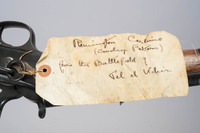 Remington Carbine
(Cavalry Pattern)
from the Battlefield of
Tel el Kebir